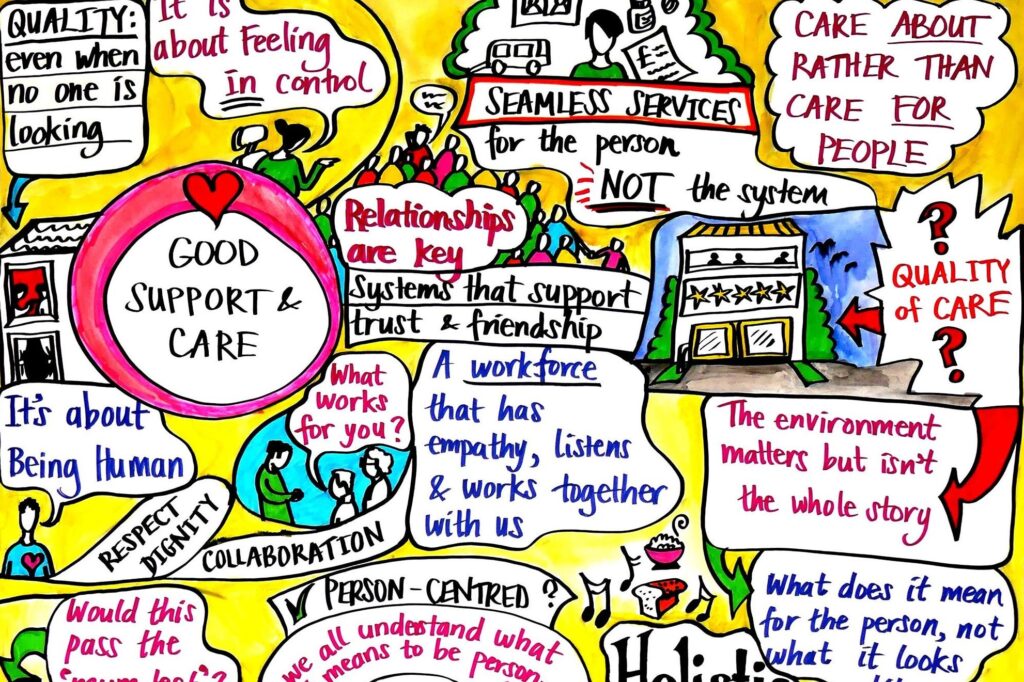 QUALITY:
even when
no one is
looking
It is
about Feeling
in control
SEAMLESS SERVICES
for the person
NOT the system
£
CARE ABOUT
RATHER THAN
CARE FOR
PEOPLE
GOOD
SUPPORT &
CARE
Relationships
are key
Systems that support
trust & friendship
?
QUALITY
of CARE
?
It's about
Being Human
RESPECT
DIGNITY
COLLABORATION
What
works
for you?
A workforce
that has
empathy, listens
& works together
with us
The environment
matters but isn't
the whole story
Would this
pass the
'mum test'?
PERSON-CENTRED ?
we all understand what
means to be
Holistic
What does it mean
for the person, not
what it looks